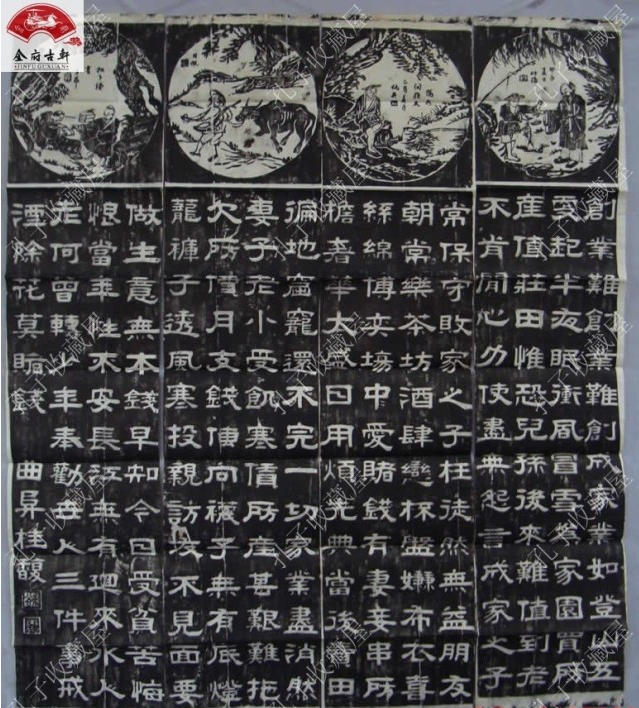 金府古軒
JINFUGUXUAN
創業難創業難創成家業如登山五
更起半夜眠衝風冒雪爲家園買房
產值莊田惟恐兒孫後來難值到老
不肯閒心力使盡無怨言成家之子
常保守敗家之子枉徒然無益朋友
朝常樂茶坊酒肆戀杯盤嫌布衣喜
絲綿博奕場中愛賭錢有妻妾串所
奢華大盛日用煩光典當後賣田
徧地窟竉還不完一切家業盡消然
妻子老小受飢寒債房產甚艱難拖
欠房債月支錢伸向襪子無有底燈
籠褲子透風寒投親訪友不見面要
做生意無本錢早知今日受貧苦悔
恨當年性不安長江無有迴來水人
老何曾轉少年奉勸世人三件事戒
酒除花莫賭錢 曲阜桂馥
孔子收藏屋